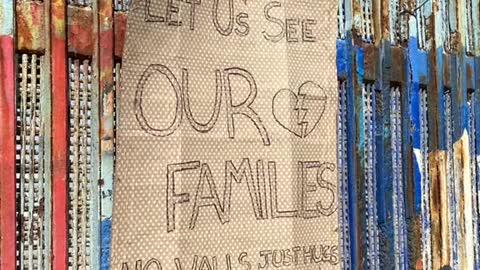 LET US SEE
OUR
FAMILES
NO WALLS JUST HUGS